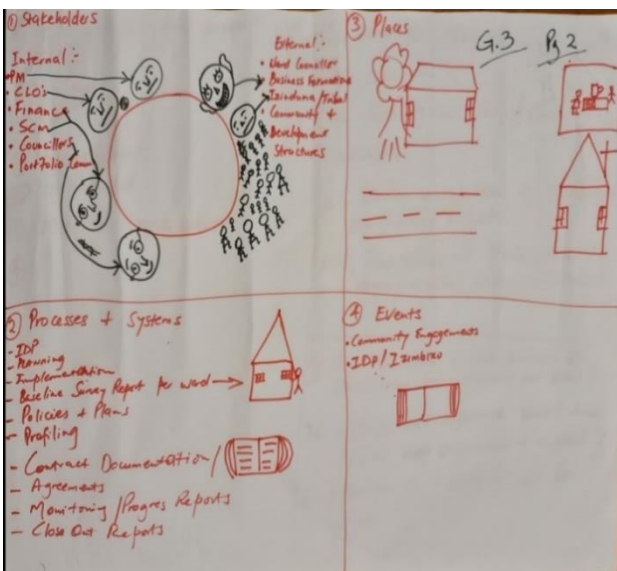 ① Stakeholders
Internal :-
PM
• CLO's
• Finance
• SCM
• Councillors
• Portfolio
External :-
• Ward Councillor
• Business Formations
• Izinduna/
• Community +
Development
Structures
③ Places
G.3 Pg 2
② Processes + Systems
- IDP
- Planning
- Implementation
- Baseline Survey Report per ward
- Policies + Plans
- Profiling
- Contract Documentation/
- Agreements
- Monitoring/Progres Reports
- Close Out Reports
④ Events
• Community Engagements
• IDP/Izimbizo